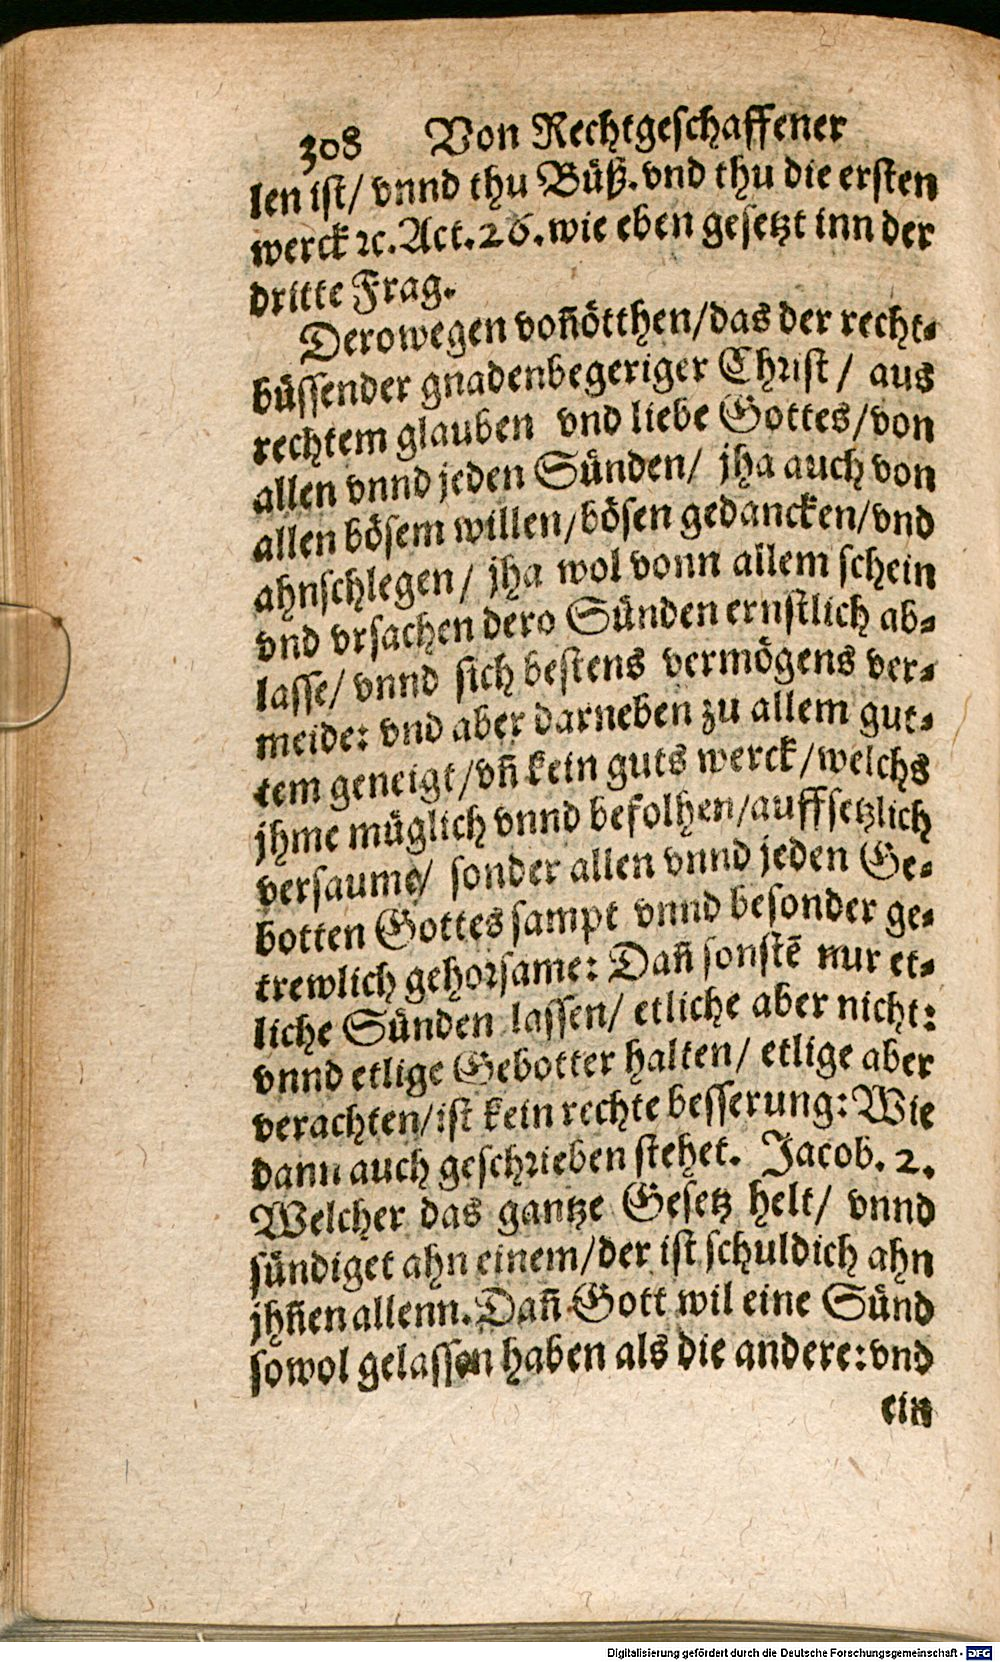 308 Von Rechtgeschaffener
len ist/ vnnd thu Büß. vnd thu die ersten
werck ꝛc. Act. 26. wie eben gesetzt inn der
dritte Frag.
Derowegen von̄ötthen/das der recht⸗
büssender gnadenbegeriger Christ/ aus
rechtem glauben vnd liebe Gottes/von
allen vnnd jeden Sünden/ jha auch von
allen bösem willen/bösen gedancken/vnd
ahnschlegen/ jha wol vonn allem schein
vnd vrsachen dero Sünden ernstlich ab⸗
lasse/ vnnd sich bestens vermögens ver⸗
meide: vnd aber darneben zu allem gut⸗
tem geneigt/vn̄ kein guts werck/welchs
jhme müglich vnnd befolhen/auffsetzlich
versaume/ sonder allen vnnd jeden Ge⸗
botten Gottes sampt vnnd besonder ge⸗
trewlich gehorsame: Dan̄ sonstē nur et⸗
liche Sünden lassen/ etliche aber nicht:
vnnd etlige Gebotter halten/ etlige aber
verachten/ist kein rechte besserung: Wie
dann auch geschrieben stehet. Jacob. 2.
Welcher das gantze Gesetz helt/ vnnd
sündiget ahn einem/der ist schuldich ahn
jhn̄en allenn. Dan̄ Gott wil eine Sünd
sowol gelassen haben als die andere: vnd
ein
Digitalisierung gefördert durch die Deutsche Forschungsgemeinschaft - DFG